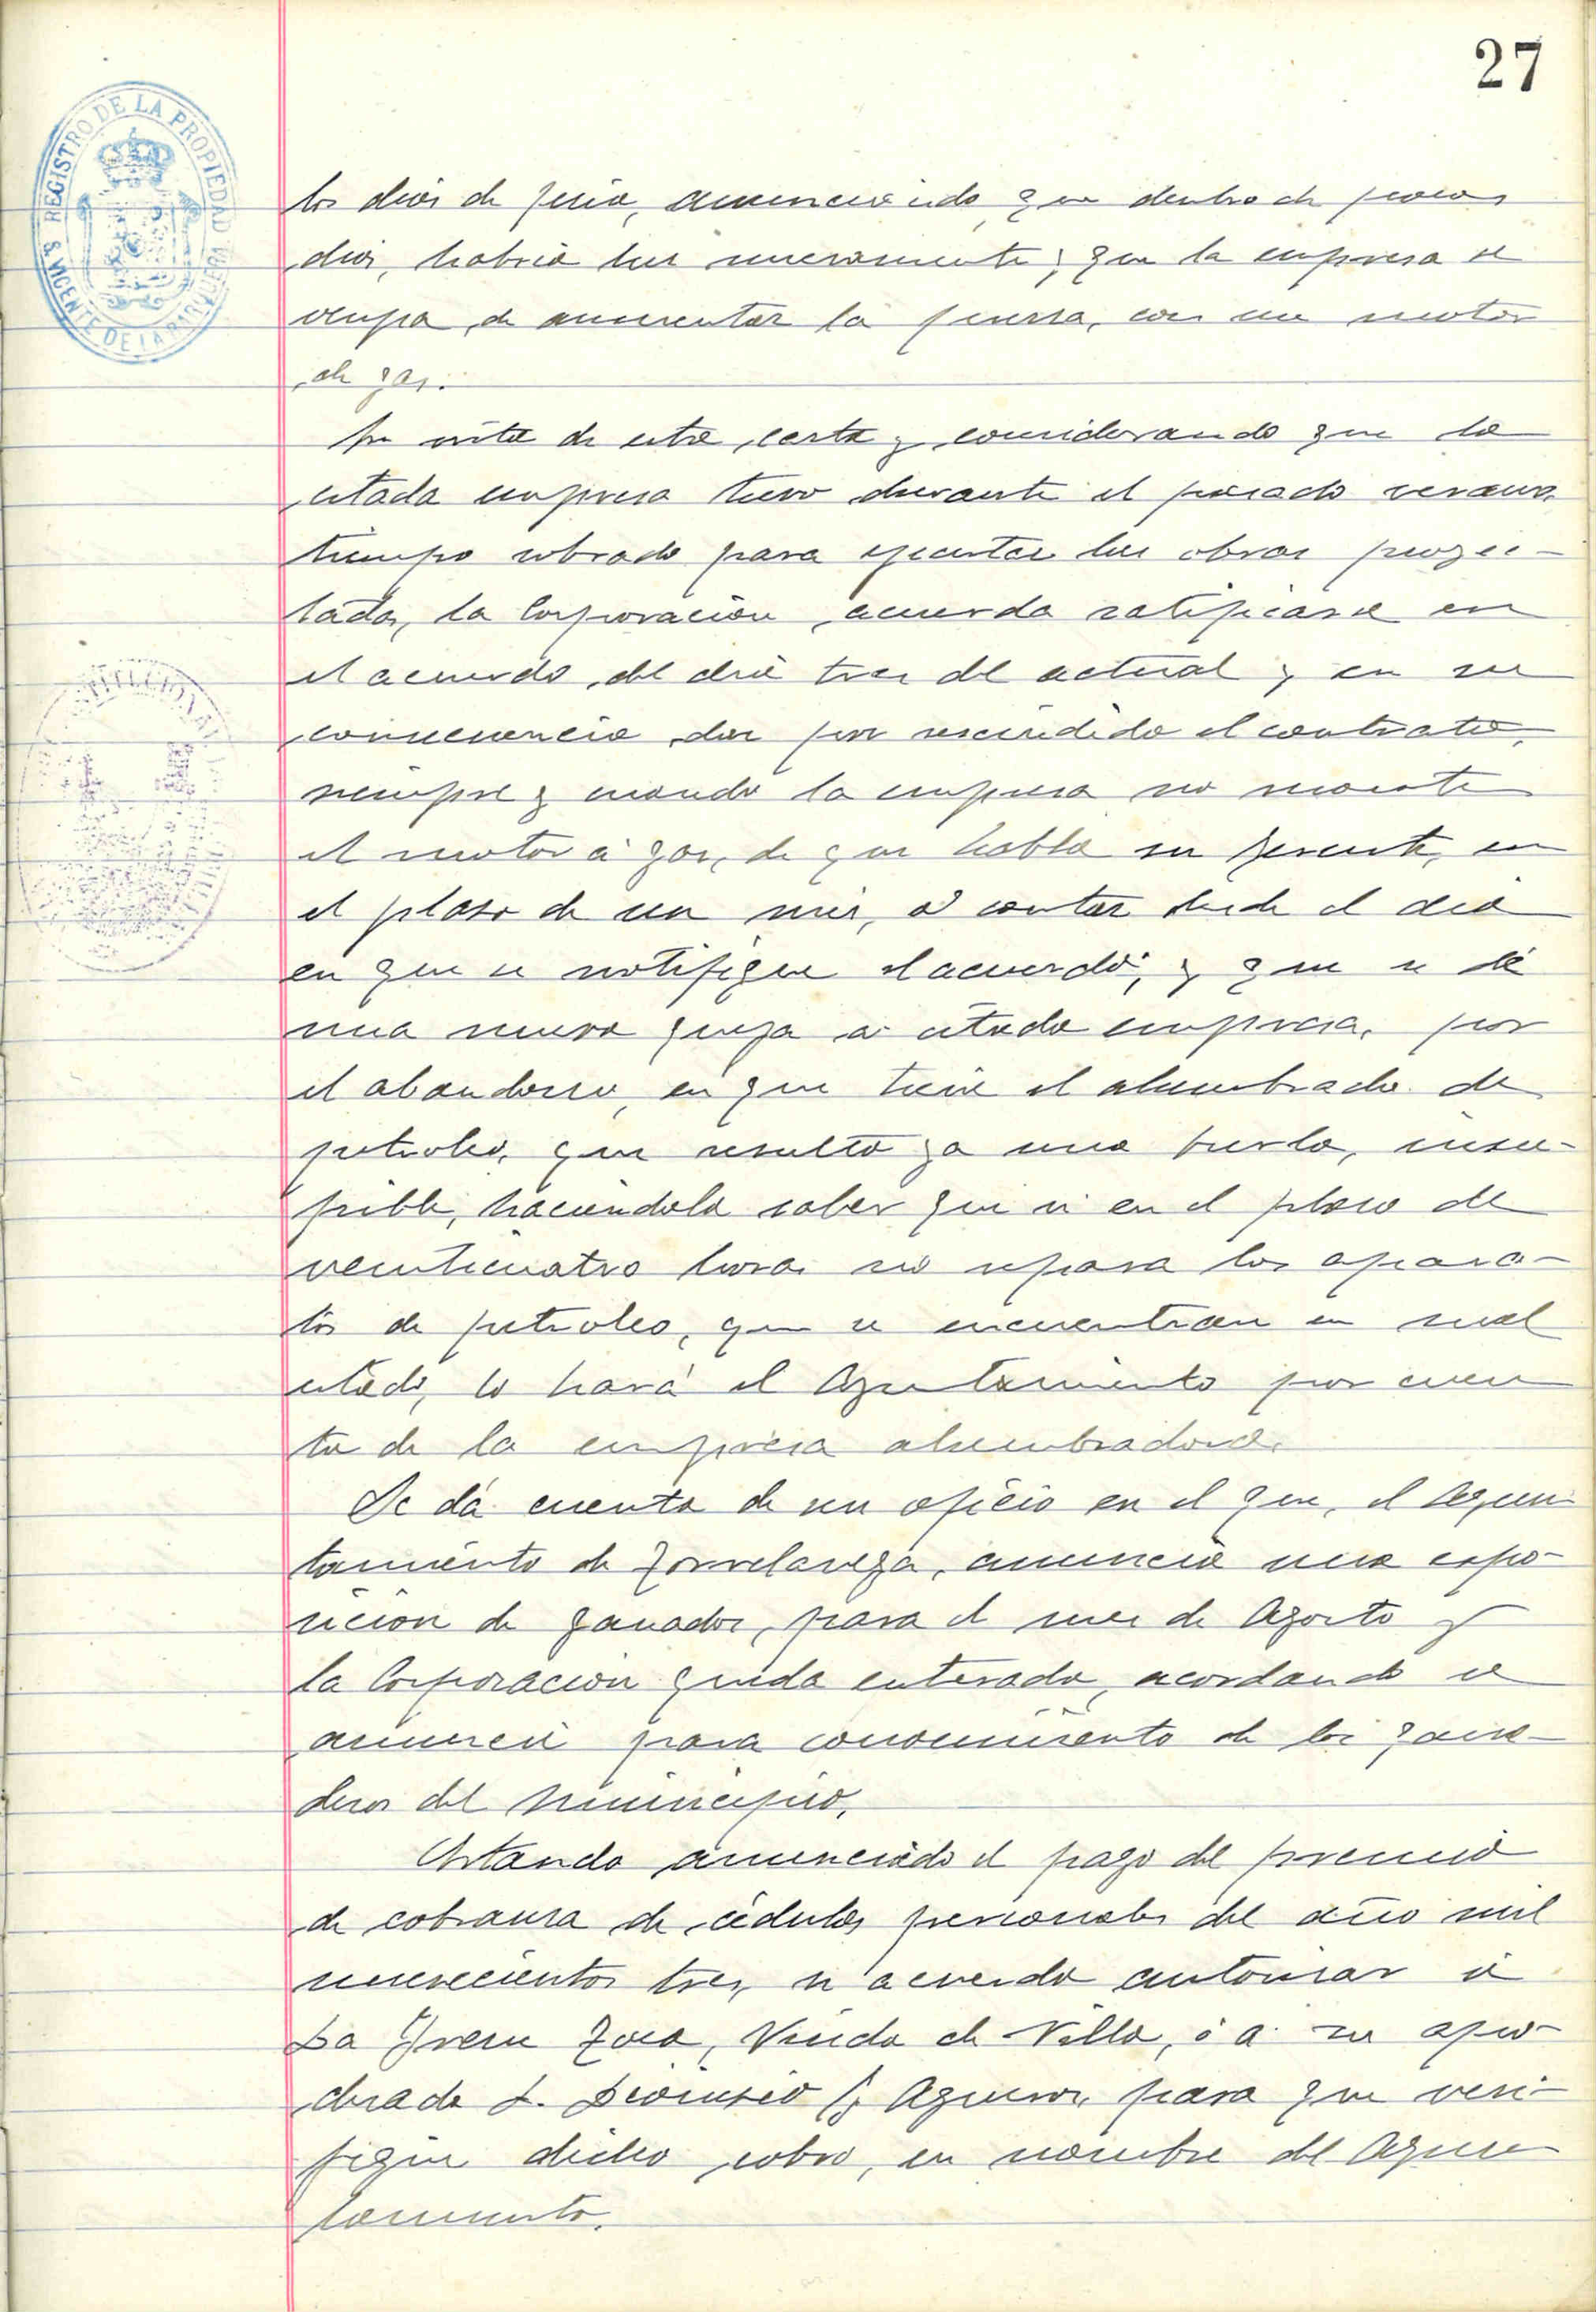 27
REGISTRO DE LA PROPIEDAD
S. VICENTE DE LA BARQUERA
los dias de feria, anunciando que dentro de pocos
dias, habria luz nuevamente y que la empresa se
ocupa de aumentar la fuerza, con un motor
de gas.
En vista de esta carta y considerando que la
citada empresa tuvo durante el pasado verano
tiempo sobrado para ejecutar las obras proyec-
tadas, la Corporación acuerda ratificarse en
el acuerdo del dia tres del actual y en su
consecuencia dar por rescindido el contrato,
siempre y cuando la empresa no monte
el motor á gas, de que habla su gerente, en
el plazo de un mes, á contar desde el dia
en que se notifique el acuerdo; y que se dé
una nueva queja a citada empresa, por
el abandono, en que tiene el alumbrado de
petroleo, que resulta ya una burla, insu-
frible, haciendola saber que si en el plazo de
veinticuatro horas no repara los apara-
tos de petroleo, que se encuentran en mal
estado, lo hará el Ayuntamiento por cuen
ta de la empresa alumbradora.
Se dá cuenta de un oficio en el que, el Ayun
tamiento de Torrelavega, anuncia una expo-
sicion de ganados, para el mes de Agosto y
la Corporacion queda enterada, acordando se
anuncie para conocimiento de los gana-
deros del Municipio.
Estando anunciado el pago del premio
de cobranza de cédulas personales del año mil
novecientos tres, se acuerda autorizar á
Da Viuda de Villa, ó a su apo-
derado D. Dionisio G. Aguirre, para que veri-
fique dicho cobro, en nombre del Ayun
tamiento.